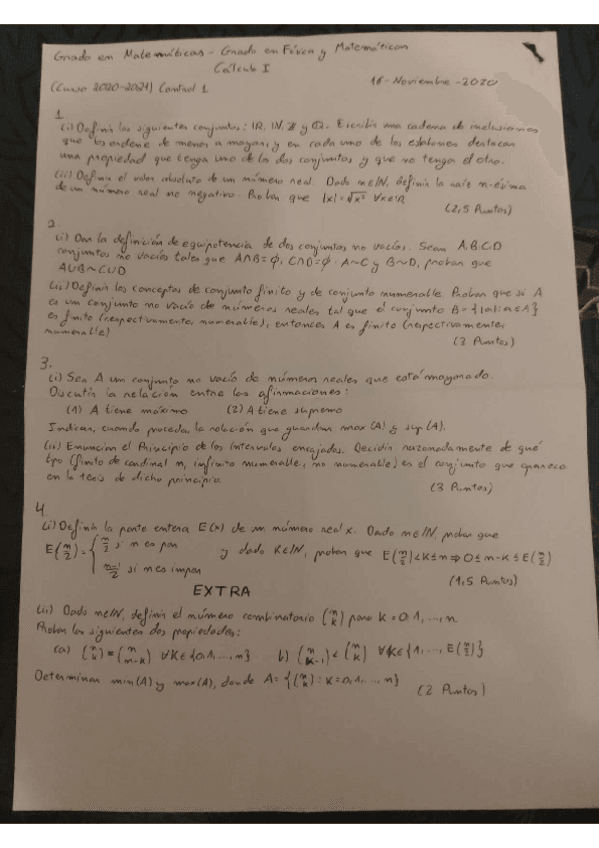 Grado en Matemáticas - Grado en Física y Matemáticas
Cálculo I
(Curso 2020-2021) Control 1
16-Noviembre-2020
1.
(i) Definir los siguientes conjuntos: ℝ, ℕ, ℤ y ℚ. Escribir una cadena de inclusiones
que los ordene de menor a mayor; y en cada uno de los eslabones destacar
una propiedad que tenga uno de los dos conjuntos y que no tenga el otro.
(ii) Definir el valor absoluto de un número real. Dado n∈ℕ, definir la raíz n-ésima
de un número real no negativo. Probar que |x|=√x² ∀x∈ℝ
(2,5 Puntos)
2.
(i) Dar la definición de equipotencia de dos conjuntos no vacíos. Sean A,B,C,D
conjuntos no vacíos tales que A∩B=∅, C∩D=∅. A~C y B~D, probar que
A∪B~C∪D
(ii) Definir los conceptos de conjunto finito y de conjunto numerable. Probar que si A
es un conjunto no vacío de números reales tal que el conjunto B={|a|:a∈A}
es finito (respectivamente, numerable), entonces A es finito (respectivamente,
numerable)
(3 Puntos)
3.
(i) Sea A un conjunto no vacío de números reales que está mayorado.
Discutir la relación entre las afirmaciones:
(1) A tiene máximo (2) A tiene supremo
Indicar, cuando proceda, la relación que guardan max(A) y sup(A).
(ii) Enunciar el Principio de los Intervalos encajados. Decidir razonadamente de qué
tipo (finito de cardinal n, infinito numerable, no numerable) es el conjunto que aparece
en la tesis de dicho principio.
(3 Puntos)
4.
(i) Definir la parte entera E(x) de un número real x. Dado n∈ℕ, probar que
E(n/2)={ n/2 si n es par
n-1/2 si n es impar
y dado k∈ℕ, probar que E(n/2)<k≤n⇒0≤n-k≤E(n/2)
(1,5 Puntos)
EXTRA
(ii) Dado n∈ℕ, definir el número combinatorio (n k) para k=0,1,...,n.
Probar las siguientes dos propiedades:
(a) (n k)=(n n-k) ∀k∈{0,1,...,n} b) (n k-1)<(n k) ∀k∈{1,...,E(n/2)}
Determinar min(A) y max(A), donde A={(n k):k=0,1,...,n}
(2 Puntos)